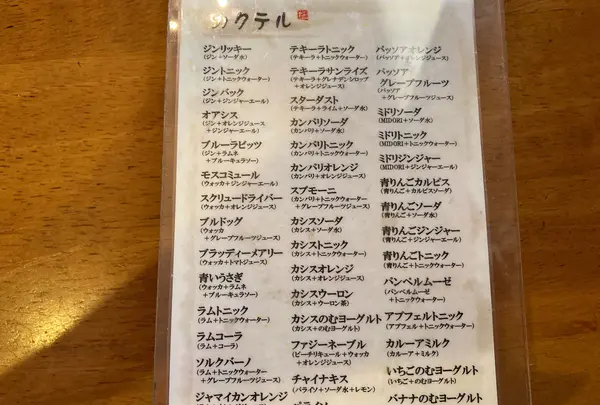 カクテル
ジンリッキー
(ジン+ソーダ水)
ジントニック
(ジン+トニックウォーター)
ジンバック
(ジン+ジンジャーエール)
オアシス
(ジン+オレンジジュース
+ジンジャーエール)
ブルーラビッツ
(ジン+ラムネ
+ブルーキュラソー)
モスコミュール
(ウォッカ+ジンジャーエール)
スクリュードライバー
(ウォッカ+オレンジジュース)
ブルドッグ
(ウォッカ
+グレープフルーツジュース)
ブラッディーメアリー
(ウォッカ+トマトジュース)
青いうさぎ
(ウォッカ+ラムネ
+ブルーキュラソー)
ラムトニック
(ラム+トニックウォーター)
ラムコーラ
(ラム+コーラ)
ソルクバーノ
(ラム+トニックウォーター
+グレープフルーツジュース)
ジャマイカンオレンジ
テキーラトニック
(テキーラ+トニックウォーター)
テキーラサンライズ
(テキーラ+グレナデンシロップ
+オレンジジュース)
スターダスト
(テキーラ+ライム+ソーダ水)
カンパリソーダ
(カンパリ+ソーダ水)
カンパリトニック
(カンパリ+トニックウォーター)
カンパリオレンジ
(カンパリ+オレンジジュース)
スプモーニ
(カンパリ+トニックウォーター
+グレープフルーツジュース)
カシスソーダ
(カシス+ソーダ水)
カシストニック
(カシス+トニックウォーター)
カシスオレンジ
(カシス+オレンジジュース)
カシスウーロン
(カシス+ウーロン茶)
カシスのむヨーグルト
(カシス+のむヨーグルト)
ファジーネーブル
(ピーチリキュール+ウォッカ
+オレンジジュース)
チャイナキス
(パライソ+ソーダ水+レモン)
パッソアオレンジ
(パッソア+オレンジジュース)
パッソア
グレープフルーツ
(パッソア
+グレープフルーツジュース)
ミドリソーダ
(MIDORI+ソーダ水)
ミドリトニック
(MIDORI+トニックウォーター)
ミドリジンジャー
(MIDORI+ジンジャーエール)
青りんごカルピス
(青りんご+カルピスソーダ)
青りんごソーダ
(青りんご+ソーダ水)
青りんごジンジャー
(青りんご+ジンジャーエール)
青りんごトニック
(青りんご+トニックウォーター)
パンペルムーゼ
(パンペルムーゼ
+トニックウォーター)
アプフェルトニック
(アプフェル+トニックウォーター)
カルーアミルク
(カルーア+ミルク)
いちごのむヨーグルト
(いちご+のむヨーグルト)
バナナのむヨーグルト